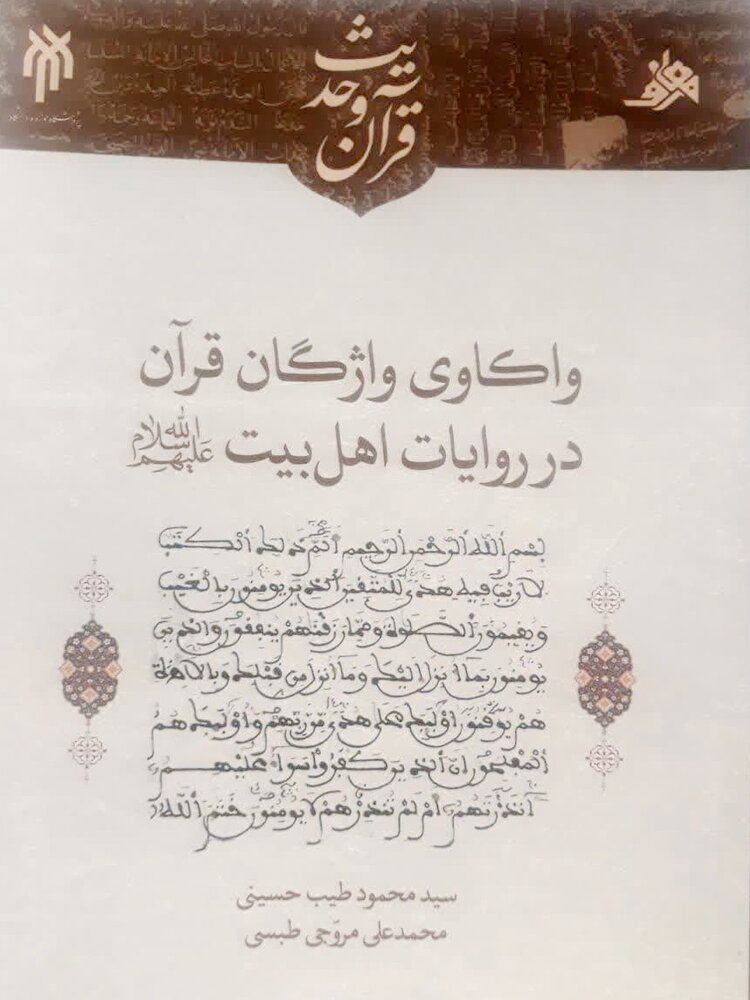 قرآن و حدیث
پژوهشگاه حوزه و دانشگاه
واکاوی واژگان قرآن
در روایات اهل‌بیت علیهم‌السلام
بسم الله الرحمن الرحيم الم ذلك الكتب
لا ريب فيه هدى للمتقين الذين يومنون بالغيب
ويقيمون الصلوة ومما رزقنهم ينفقون والذين
يومنون بما انزل اليك وما انزل من قبلك وبالاخرة
هم يوقنون اوليك على هدى من ربهم واوليك هم
المفلحون ان الذين كفروا سواء عليهم
انذرتهم ام لم تنذرهم لا يومنون ختم الله
سید محمود طیب حسینی
محمدعلی مروّجی طبسی